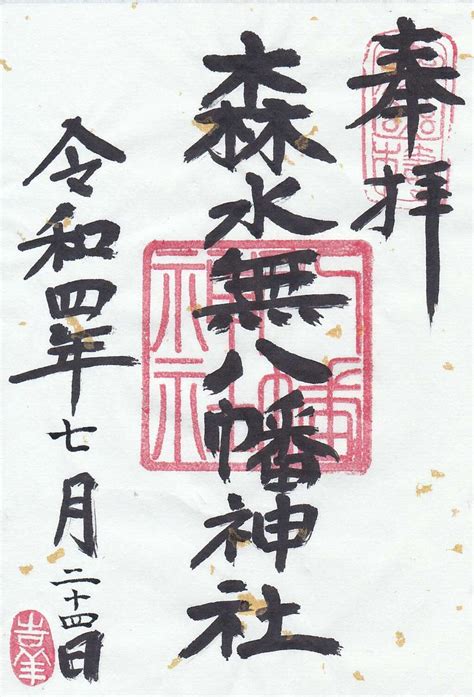 奉拝
森水無八幡神社
令和四年七月二十四日